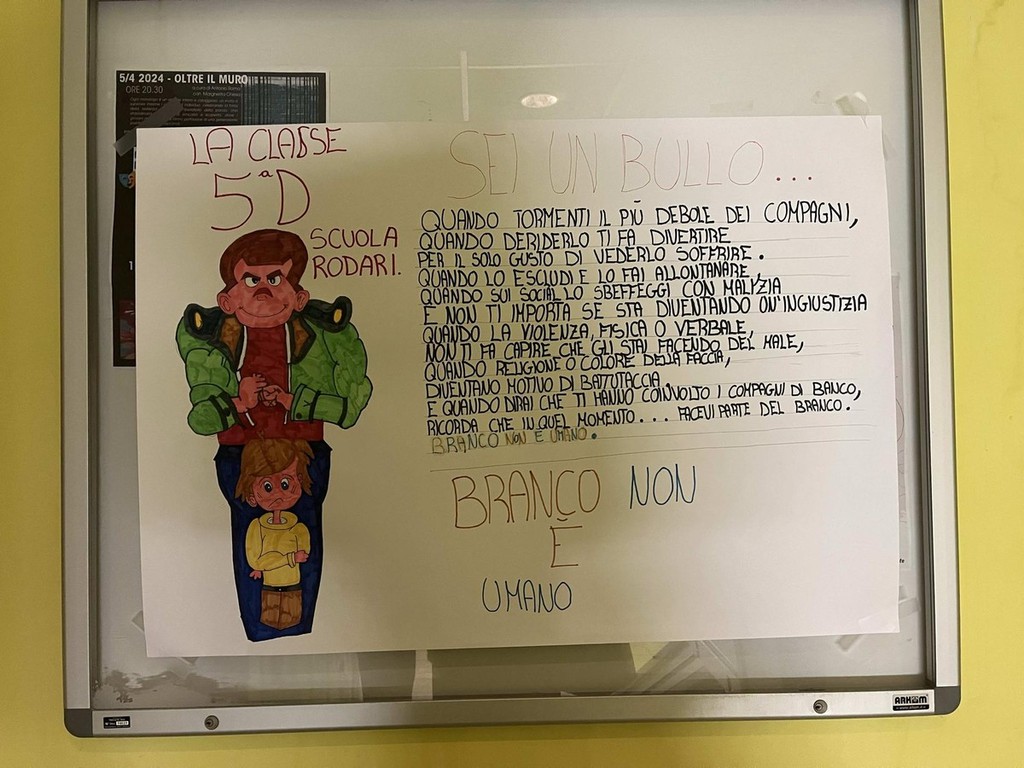 5/4 2024 - OLTRE IL MURO
ORE 20.30
LA CLASSE
5ªD
SCUOLA
RODARI.
SEI UN BULLO...
QUANDO TORMENTI IL PIÙ DEBOLE DEI COMPAGNI,
QUANDO DERIDERLO TI FA DIVERTIRE
PER IL SOLO GUSTO DI VEDERLO SOFFRIRE.
QUANDO LO ESCLUDI E LO FAI ALLONTANARE,
QUANDO SUI SOCIAL LO SBEFFEGGI CON MALIZIA
E NON TI IMPORTA SE STA DIVENTANDO UN'INGIUSTIZIA
QUANDO LA VIOLENZA, FISICA O VERBALE,
NON TI FA CAPIRE CHE GLI STAI FACENDO DEL MALE,
QUANDO RELIGIONE O COLORE DELLA FACCIA,
DIVENTANO MOTIVO DI BATTUTACCIA,
E QUANDO DIRAI CHE TI HANNO COINVOLTO I COMPAGNI DI BANCO,
RICORDA CHE IN QUEL MOMENTO.... FACEVI PARTE DEL BRANCO.
BRANCO NON È UMANO.
BRANCO NON
È
UMANO
ARHOM